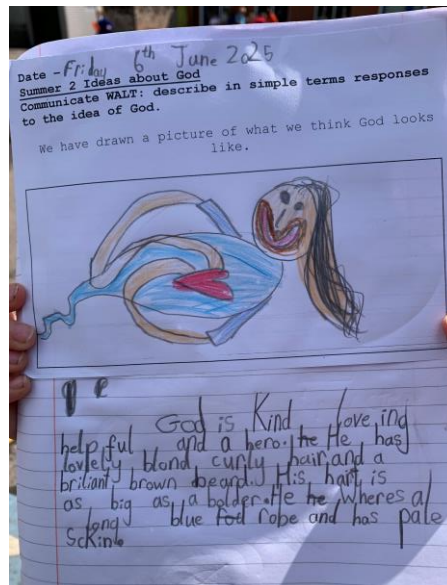 Date - Friday 6th June 2025
Summer 2 Ideas about God
Communicate WALT: describe in simple terms responses
to the idea of God.
We have drawn a picture of what we think God looks
like.
God is Kind love ing
helpful and a hero. He has
lovlely blond curly hair and a
briliant brown beard. His hart is
as big as a bolder. He wheres a
long blue robe and has pale
sckin.